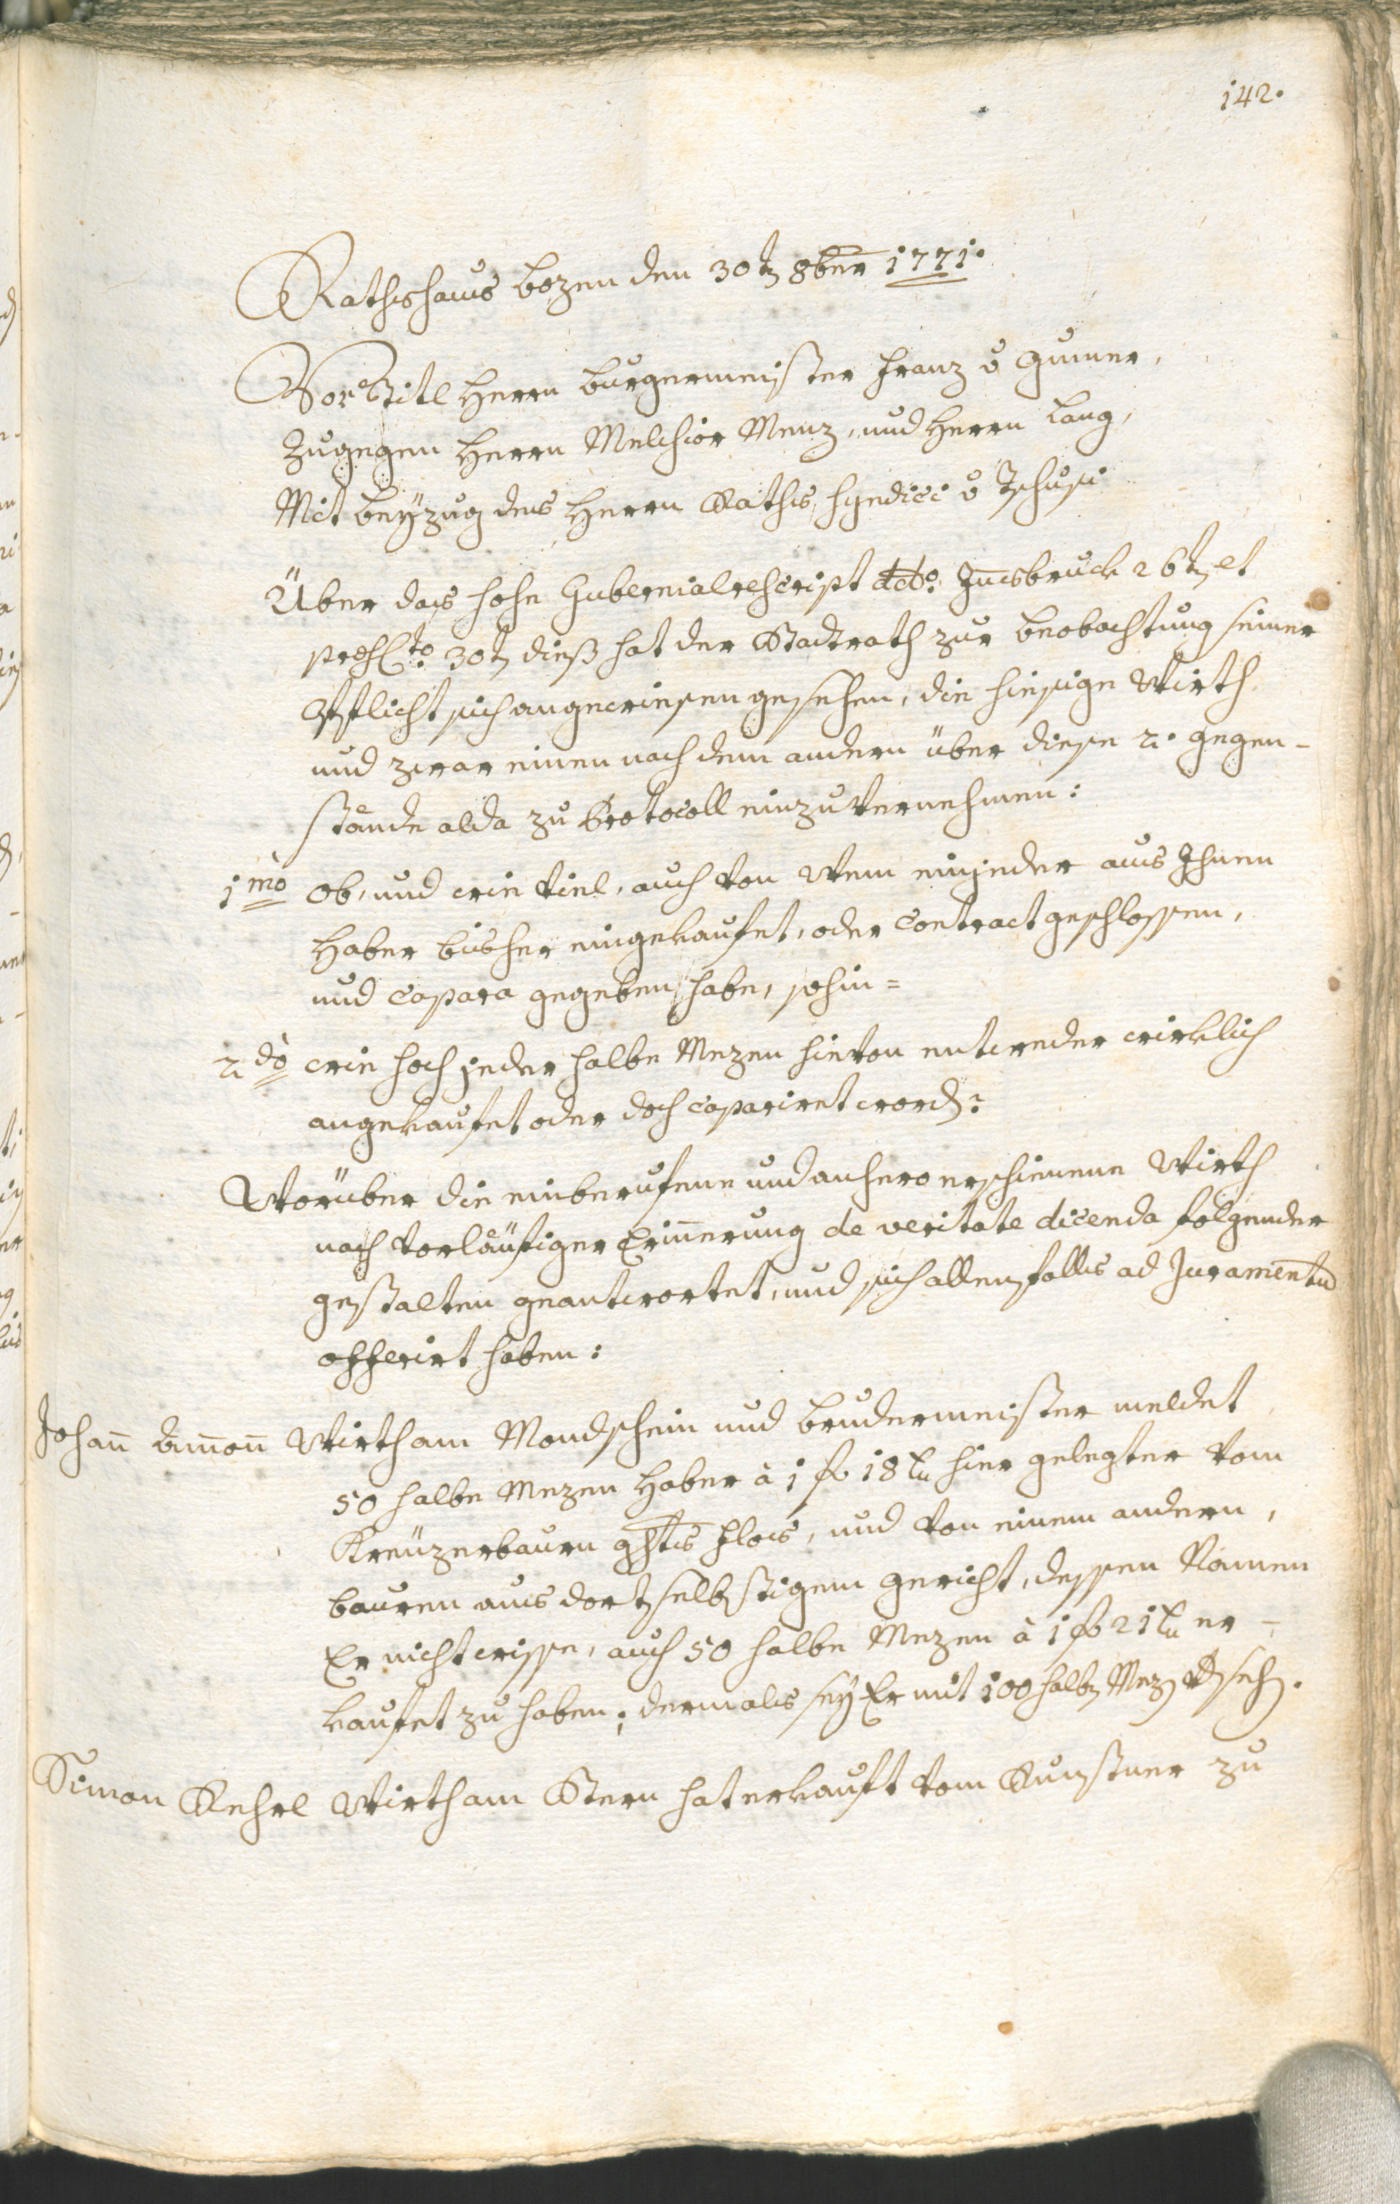 142.
Rathshaus Bozen den 30t 8ber 1771.
Vor Titl Herrn Burgermeister Franz v Gumer,
Zugegen Herrn Melchior Menz, und Herrn Lang,
Mit beyzug des Herrn Raths Syndici v Tschusi
Über das hohe Gubernialrescript ddto. Insbruck 26t et
preßto 30t dieß hat der Stadtrath zur beobachtung seiner
Pflicht sich angewiesen gesehen, die hiesige Wirth
und zwar einen nach dem andern über diese 2. gegen-
stände alda zu Protocoll einzuvernehmen:
1mò ob, und wie viel, auch von wem einjeder aus Ihnen
Haber bisher eingekaufet, oder Contract geschlossen,
und Capara gegeben habe, sohin=
2dò wie hoch jeder halbe Mezen hievon entweder wirklich
angekaufet oder doch caparirt word?
Worüber die einberufene und anhero erschienene Wirth
nach vorläufiger Erinnerung de veritate dicenda folgender
gestalten geantwortet, und sich allenfalls ad Juramentu
offerirt haben:
Johan Amon Wirth am Mondschein und Brudermeister meldet
50 halbe Mezen Haber à 1 f 18 xr hier gelegter vom
Kreuzerbaurn ghts Flos, und von einem andern,
bauren aus dortselbstigem gericht, dessen Namen
Er nicht wisse, auch 50 halbe Mezen à 1 f 21 xr er-
kaufet zu haben; dermals sey Er mit 100 halb Mez vseh.
Simon Kehrl Wirth am Stern hat erkauft vom Kunstner zu